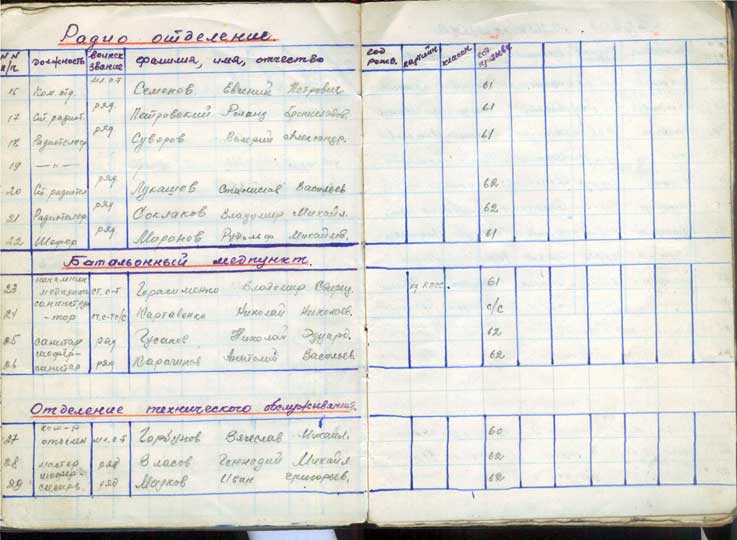 Радио отделение.
N N п/п должность воинск звание фамилия, имя, отчество год рожд. партийн классн год призыва
16 Ком. отд. мл. с-т Семенов Евгений Петрович 61
17 Ст. радист. ряд. Петровский Роланд Брониславов. 61
18 Радиотелеф ряд Суворов Валерий Александр. 61
19 —〃—
20 Ст. радист ряд Лукашев Станислав Васильев 62
21 Радиотелеф ряд Соклаков Владимир Михайл. 62
22 Шофер ряд Миронов Рудольф Михайлов. 61
Батальонный медпункт.
23 начальник медпункта ст. с-т Герасименко Владимир к косс. 61
24 санинструк-тор с/с Картавенко Николай Николаев. с/с
25 санитар ряд Гусаков Николай Эдуард. 62
26 шофер-санитар ряд Карагинов Анатолий Васильев 62
Отделение технического обслуживания.
27 ком-р отделен мл. с-т Горбунов Вячеслав Михайл. 60
28 мастер ряд Власов Геннадий Михайл 62
29 шофер- ряд Марков Иван Григорьев. 62